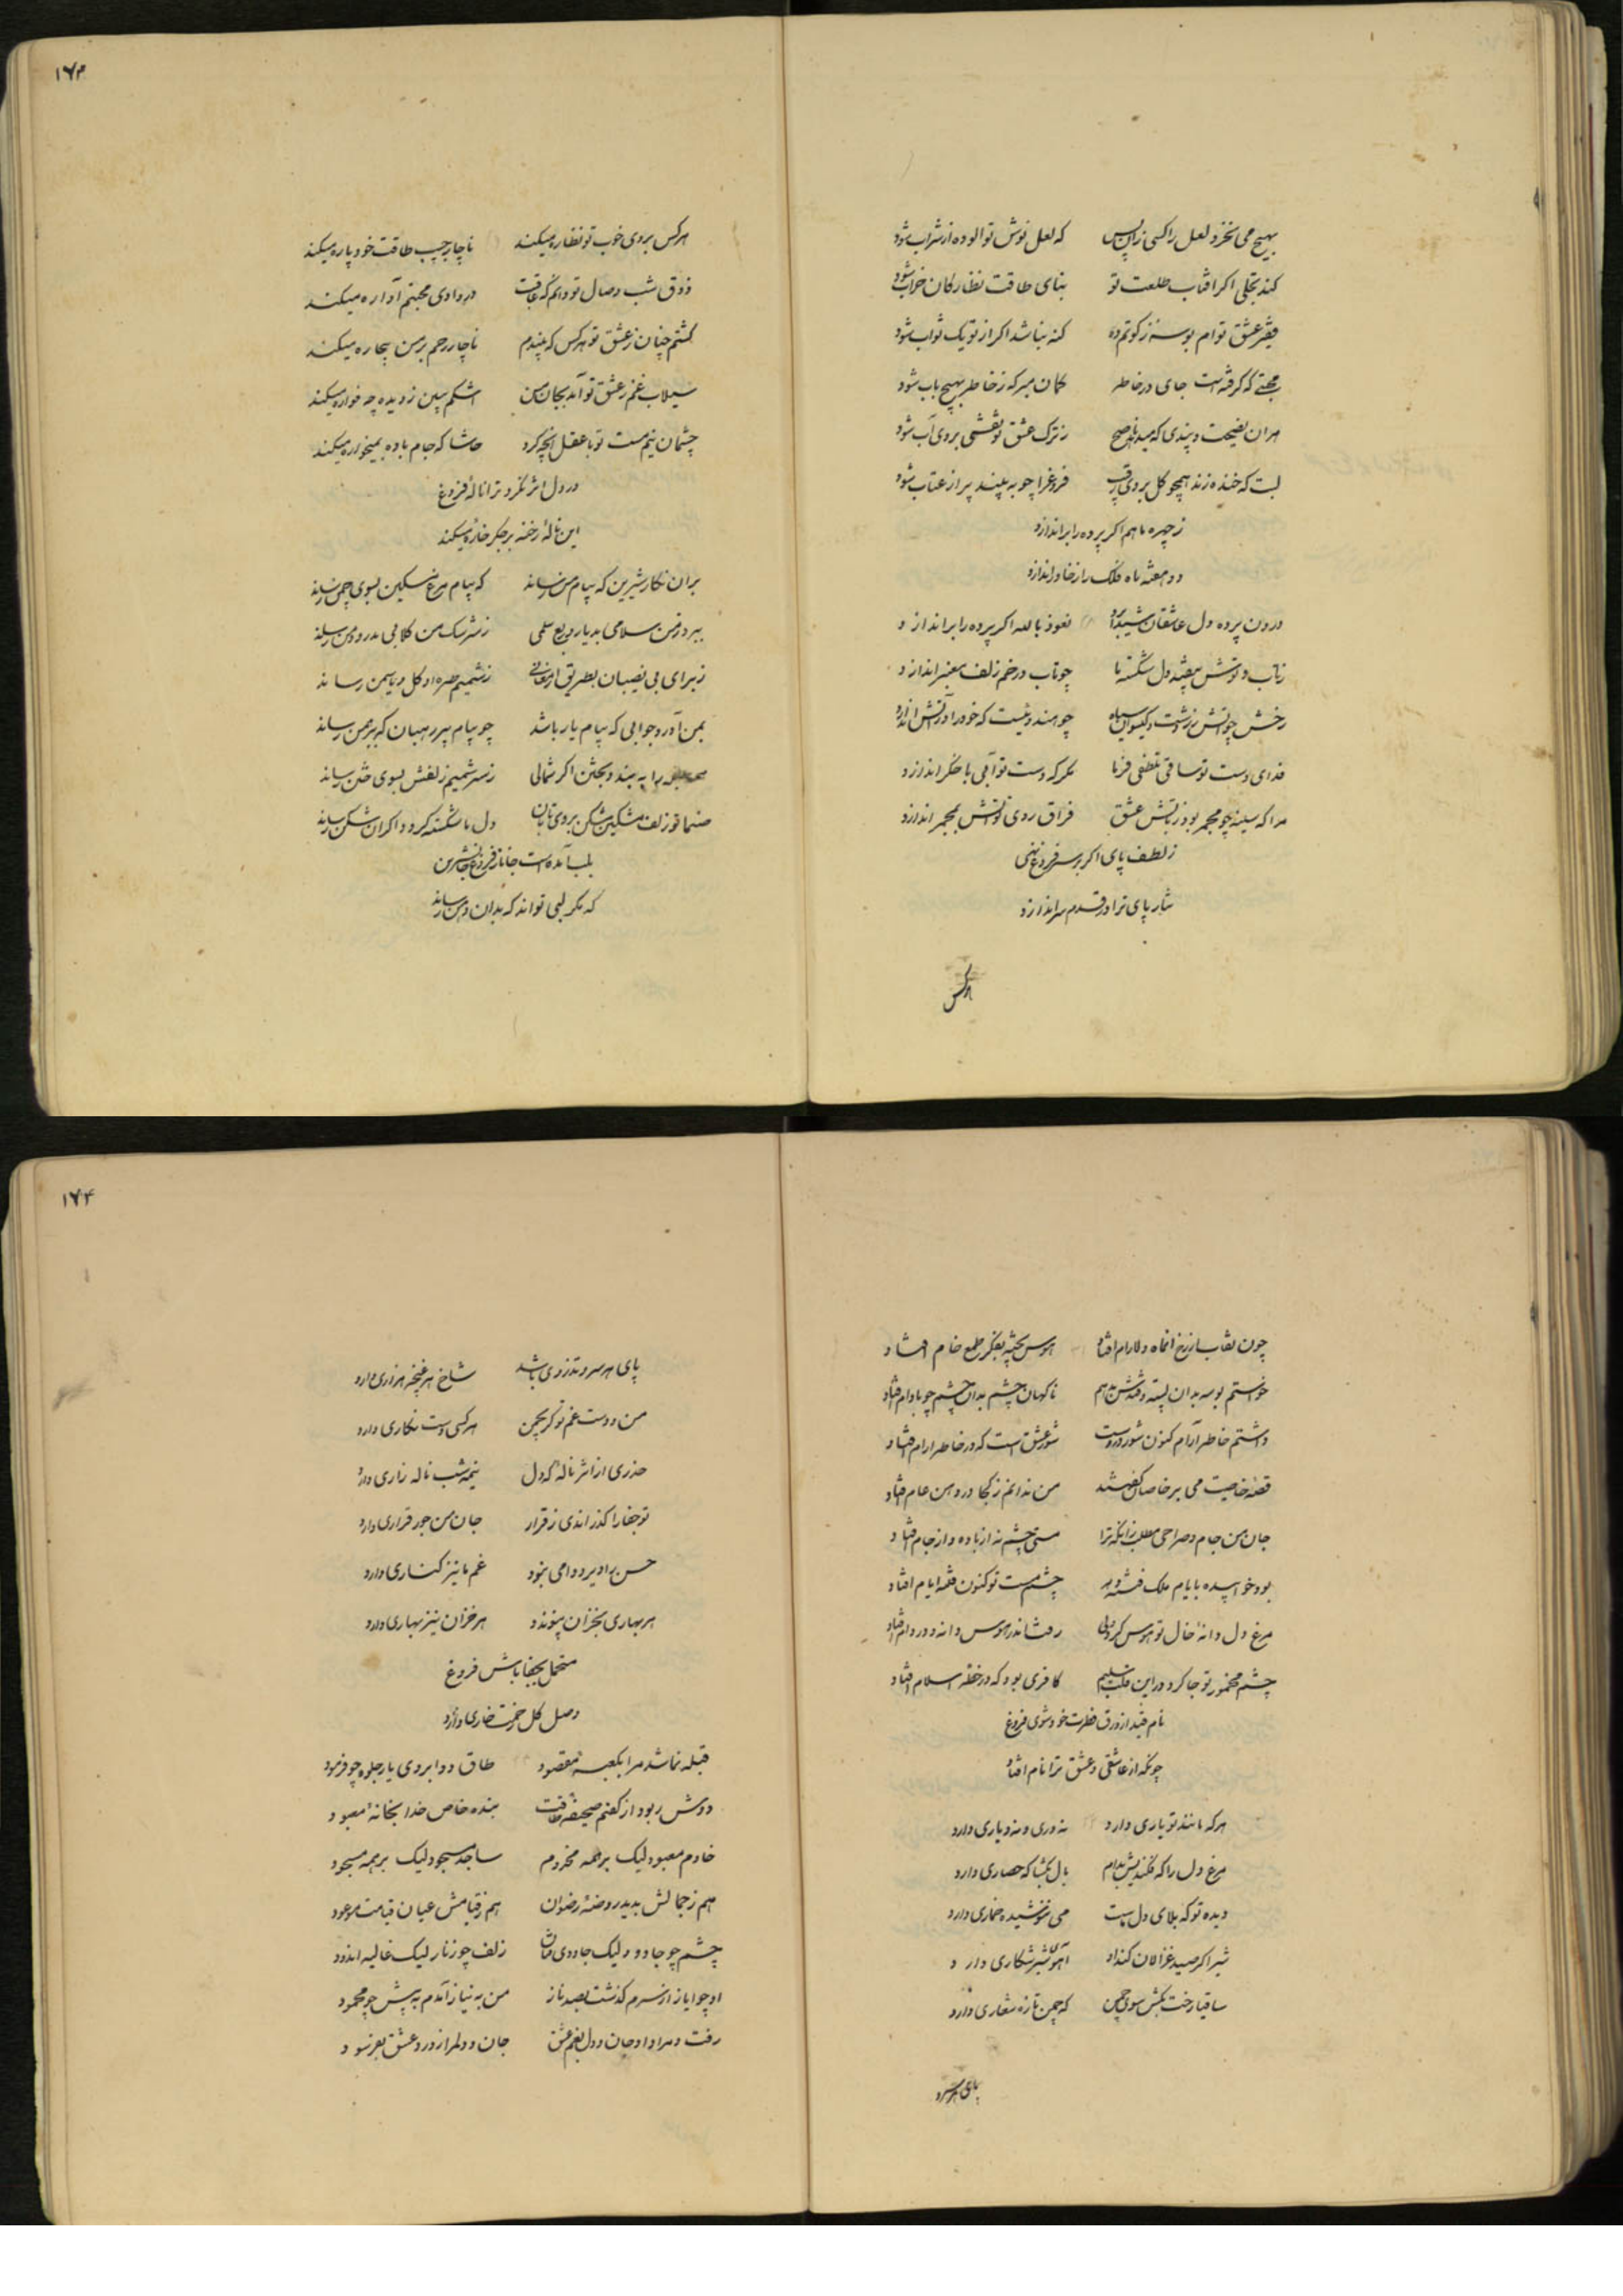 بهیچ می نخرد لعل را کسی زان پس که لعل نوش تو الوده از شراب شود
کند تجلی اگر افتاب طلعت تو بنای طاقت نظارکان خراب شود
فقیر عشق توام بوسه زکوتم ده کنه نباشد اکر از تو یک ثواب شود
محبتی که کرفته است جای در خاطر کمان مبر که ز خاطر بهیچ باب شود
هران نصیحت و پندی که میدهد ناصح ز ترک عشق تو نقشی بروی آب شود
لبت که خنده زند همچو کل بروی رقیب فروغ را چو به بیند پر از عتاب شود
ز چهره ماهم اکر پرده را براندازد
دو هفته ماه فلک را ز خاور اندازد
درون پرده دل عاشقان شیدا برد نعوذ بالله اکر پرده را براندازد
زتاب و توش بیفتد دل شکسته ما چو تاب در خم زلف معنبر اندازد
رخش چو اتش زرتشت و کیسوان سیاه چو هندوئیست که خود را در آتش اندازد
فدای دست تو ساقی تلطفی فرما مکر که دست تو آبی باخکر اندازد
مرا که سینه چو مجمر بود ز اتش عشق فراق روی تو اتش بمجمر اندازد
ز لطف پای اکر بر سر فروغ نهی
نثار پای ترا در قدم سر اندازد
هرکس
۱۷۳
هرکس بروی خوب تو نظاره میکند ناچار جیب طاقت خود پاره میکند
ذوق شب وصال تو دانم که عاقبت در وادی محبتم آواره میکند
کشتم چنان ز عشق تو هرکس که بیندم ناچار رحم بر من بیچاره میکند
سیلاب غم ز عشق تو آمد بجان من اشکم ببین ز دیده چه فواره میکند
چشمان نیم مست تو با عقل انچه کرد حاشا که جام باده بمیخواره میکند
در دل اثر نکرد ترا نالهٔ فروغ
این ناله رخنه بر جکر خاره میکند
بران نکار شیرین که پیام من رساند که پیام مرغ مسکین بسوی چمن رساند
ببرد ز من سلامی بدیار و ربع سلمی ز سرشک من کلابی بدرو دمن رساند
ز برای بی نصیبان بطریق ارمغانی ز شمیم طره او کل و یاسمن رساند
بمن آورد جوابی که پیام یار باشد چو پیام پیر رهبان که ببرهمن رساند
را به بندد بختن اکر شمالی ز سر شمیم زلفش بسوی ختن رساند
صنما تو زلف مشکین مشکن بروی تابان دل ما شکسته کردد اکر ان شکن رساند
بلب آمده است جانان ز فروغ جان شیرین
که مکر لبی تواند که بدان دهن رساند
چون نقاب از رخ انماه دلارام افتاد هوس پخته بفکر طمع خام افتاد
خواستم بوسه بدان پسته دهم ناکهان چشم بدان چشم چو بادام افتاد
داشتم خاطر آرام کنون شور دروست شور عشق است که در خاطر ارام افتاد
قصهٔ خاصیت می بر خاصان کفتند من ندانم ز کجا در دهن عام افتاد
جان من جام و صراحی مطلب زانکه ترا مستی چشم نه از باده و از جام افتاد
بود خوابیده بایام ملک فتنه و چشم مست تو کنون فتنهٔ ایام افتاد
مرغ دل دانهٔ خال تو هوس کرد ولی رفت اندر هوس دانه و در دام افتاد
چشم مخمور تو جا کرد در این قلب سلیم کافری بود که در خطهٔ اسلام افتاد
نام قیس از ورق فطرت خود شوی فروغ
چونکه از عاشقی و عشق ترا نام افتاد
هرکه مانند تو یاری دارد نه دری و نه دیاری دارد
مرغ دل را که فکندیش بدام بال بکشا که حصاری دارد
دیده تو که بلای دل ماست می ننوشیده خماری دارد
شیر اکر صید غزالان کندا آهوی شیر شکاری دارد
ساقیا رخت بکش سوی چمن که چمن تازه شعاری دارد
پای هر سرو
۱۷۴
پای هر سرو تذروی باشد شاخ هر غنچه هزاری دارد
من و دست غم تو کر بچمن هر کسی دست نکاری دارد
حذری از اثر نالهٔ که دل نیمه شب ناله زاری دارد
تو جفا را کذراندی ز قرار جان من جور قراری دارد
حسن را دیر دوامی نبود غم ما نیز کناری دارد
هر بهاری بخزان پیوندد هر خزان نیز بهاری دارد
متحمل بجفا باش فروغ
وصل کل زحمت خاری دارد
قبله نماشد مرا بکعبه مقصود طاق دو ابروی یار جلوه چو فرمود
دوش ربود از کفم صحیفه طاقت بنده خاص خدا بخانهٔ معبود
خادم معبود لیک بر همه مخدوم ساجد مسجود لیک بر همه مسجود
هم ز جمالش پدید روضهٔ رضوان هم ز قیامش عیان قیامت موعود
چشم چو جادو ولیک جادوی فتان زلف چو زنار لیک غالیه اندود
او چو ایاز از سرم کذشت بصد ناز من به نیاز آمدم به پیش چو محمود
رفت و مرا داد جان و دل بغم عشق جان و دلم را ز درد عشق بفرسود